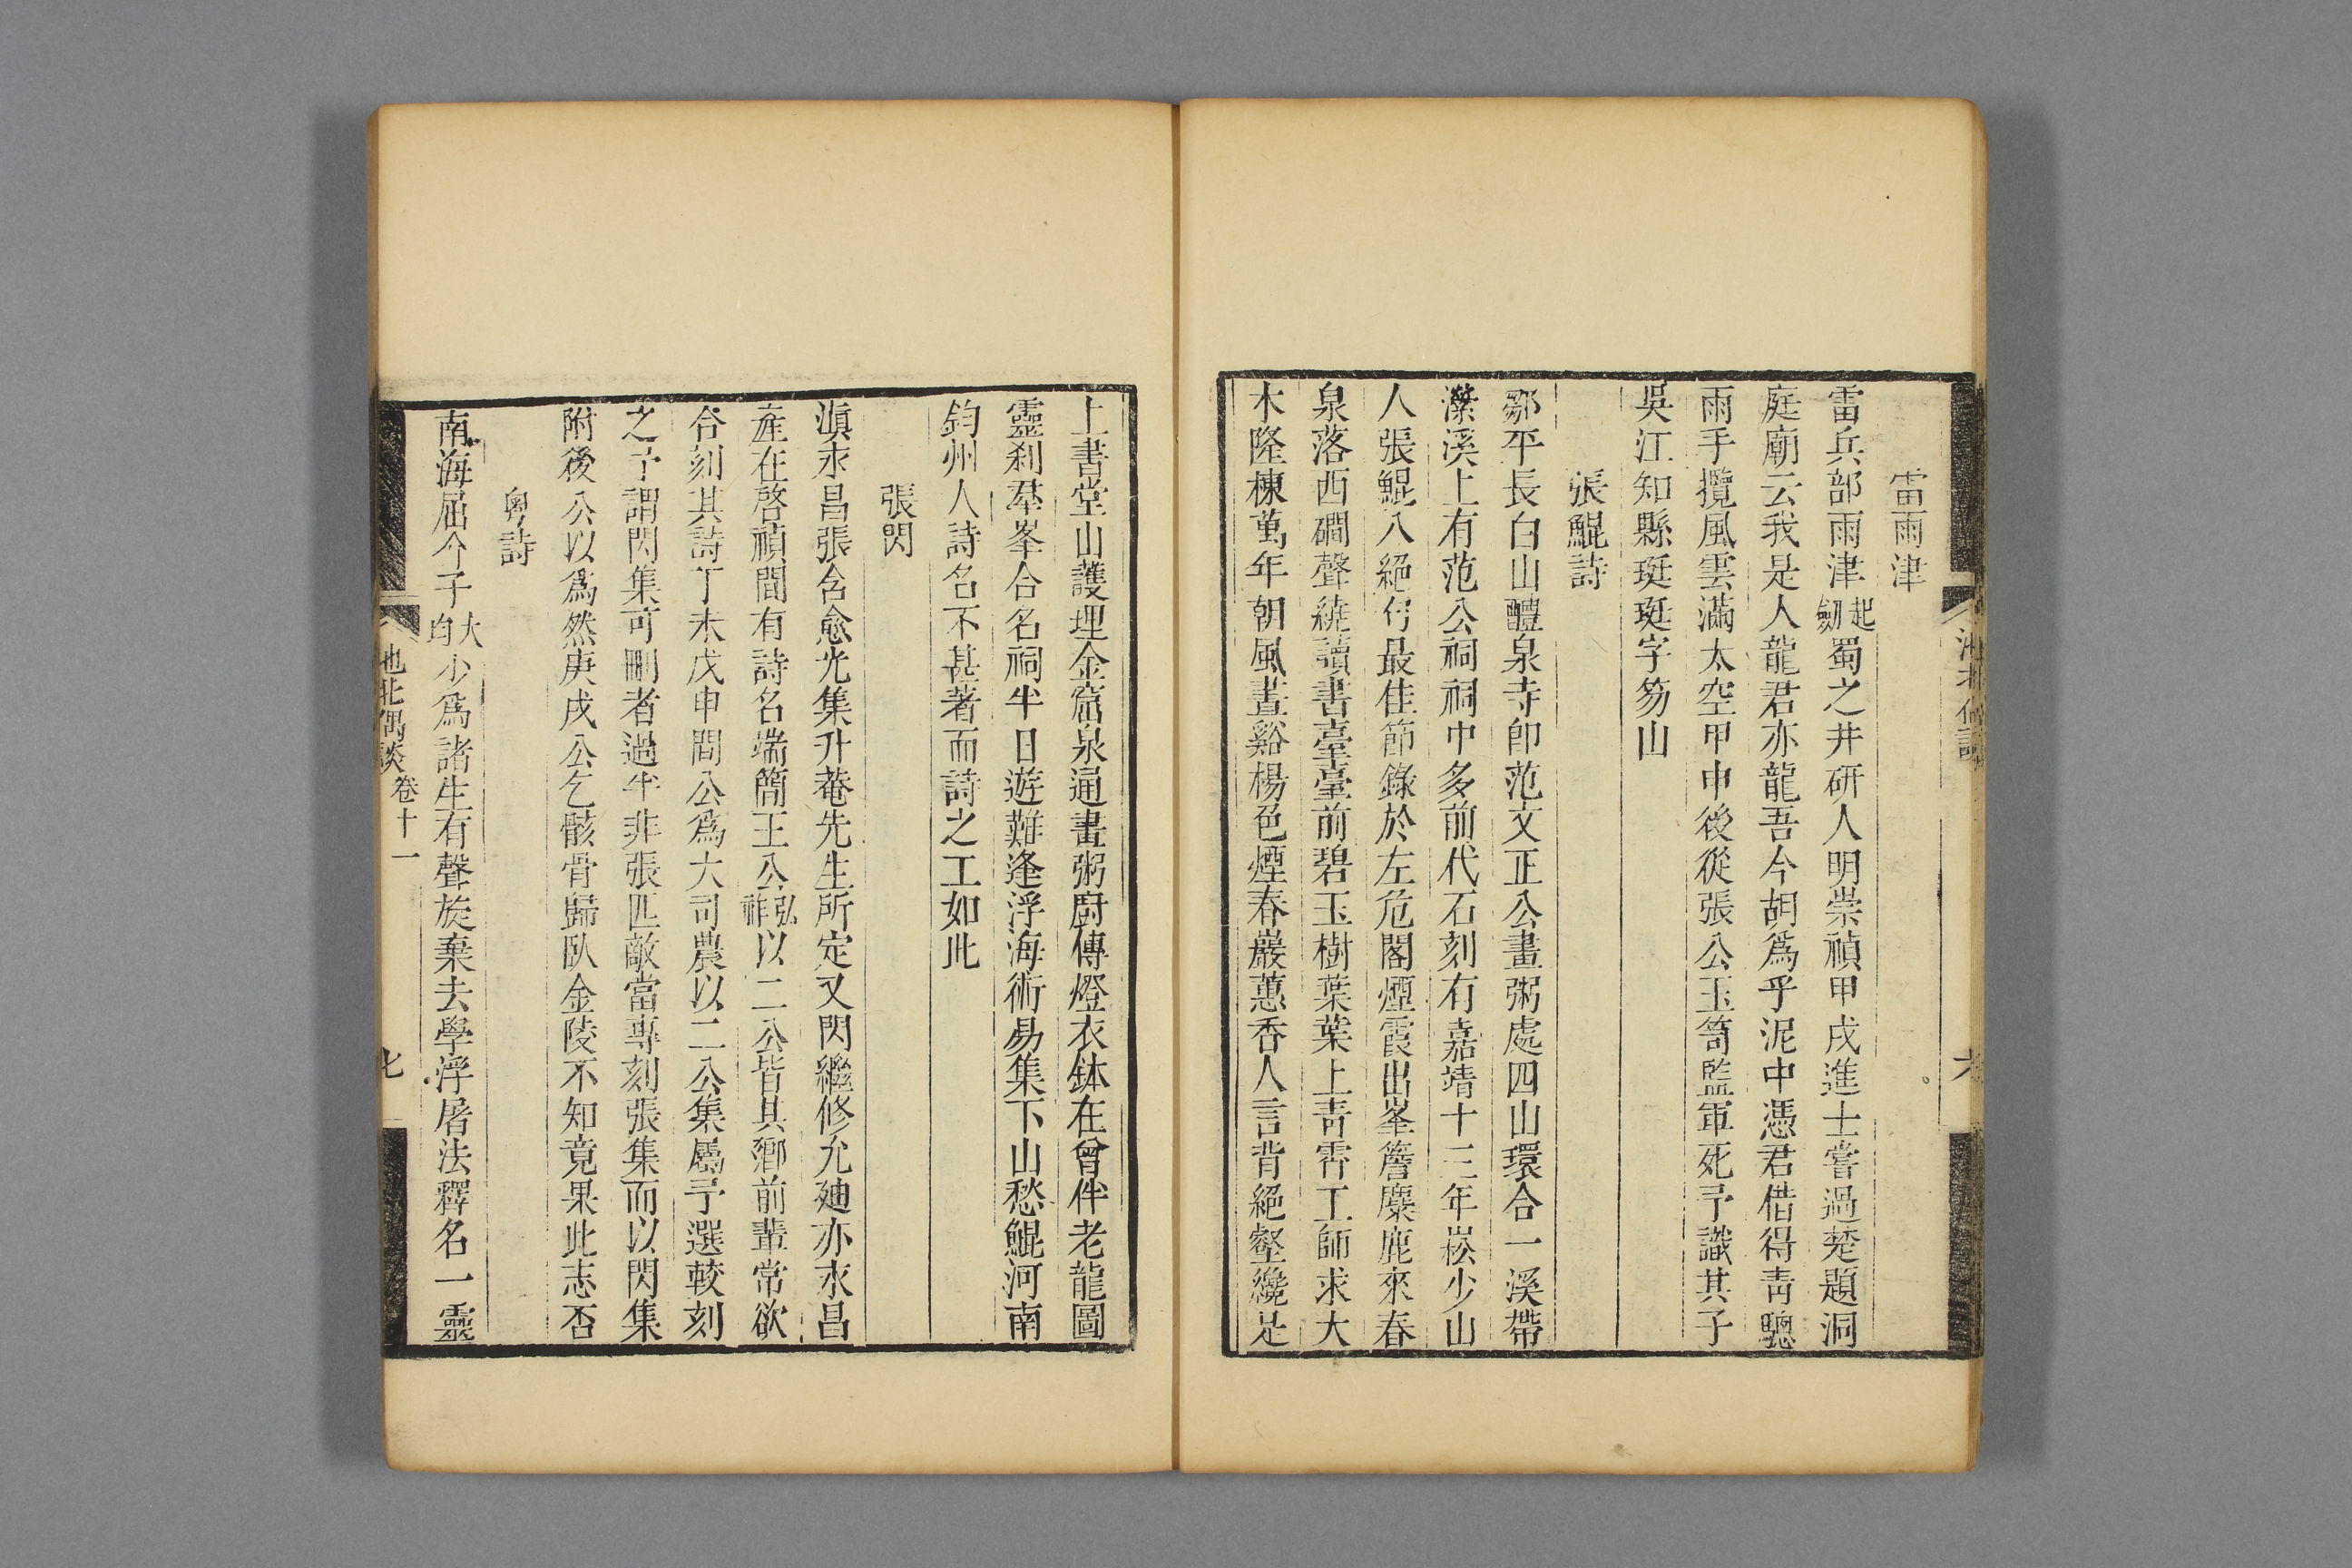 雷雨津
雷兵部雨津起劒蜀之井研人明崇禎甲戌進士嘗過楚題洞
庭廟云我是人龍君亦龍吾今胡爲乎泥中憑君借得靑驄
雨手攬風雲滿太空甲申後從張公玉笥監軍死予識其子
吳江知縣珽珽字笏山
張鯤詩
鄒平長白山醴泉寺卽范文正公畫粥處四山環合一溪帶
瀠溪上有范公祠祠中多前代石刻有嘉靖十三年崧少山
人張鯤八絕句最佳節錄於左危閣煙霞出峯簷麋鹿來春
泉落西磵聲繞讀書臺臺前碧玉樹葉葉上靑霄工師求大
木隆棟萬年朝風晝谿楊色煙春巖蕙香人言背絕壑纔足
池北偶談
六
上書堂山護埋金窟泉通畫粥廚傳燈衣鉢在曾伴老龍圖
靈刹羣峯合名祠半日遊難逢浮海術易集下山愁鯤河南
鈞州人詩名不甚著而詩之工如此
張閃
滇永昌張含愈光集升菴先生所定又閃繼修允廸亦永昌
產在啓禎間有詩名端簡王公弘祚以二公皆其鄉前輩常欲
合刻其詩丁未戊申間公爲大司農以二公集屬予選較刻
之予謂閃集可刪者過半非張匹敵當專刻張集而以閃集
附後公以爲然庚戌公乞骸骨歸臥金陵不知竟果此志否
粵詩
南海屈介子大均少爲諸生有聲旋棄去學浮屠法釋名一靈
池北偶談
卷十一
七